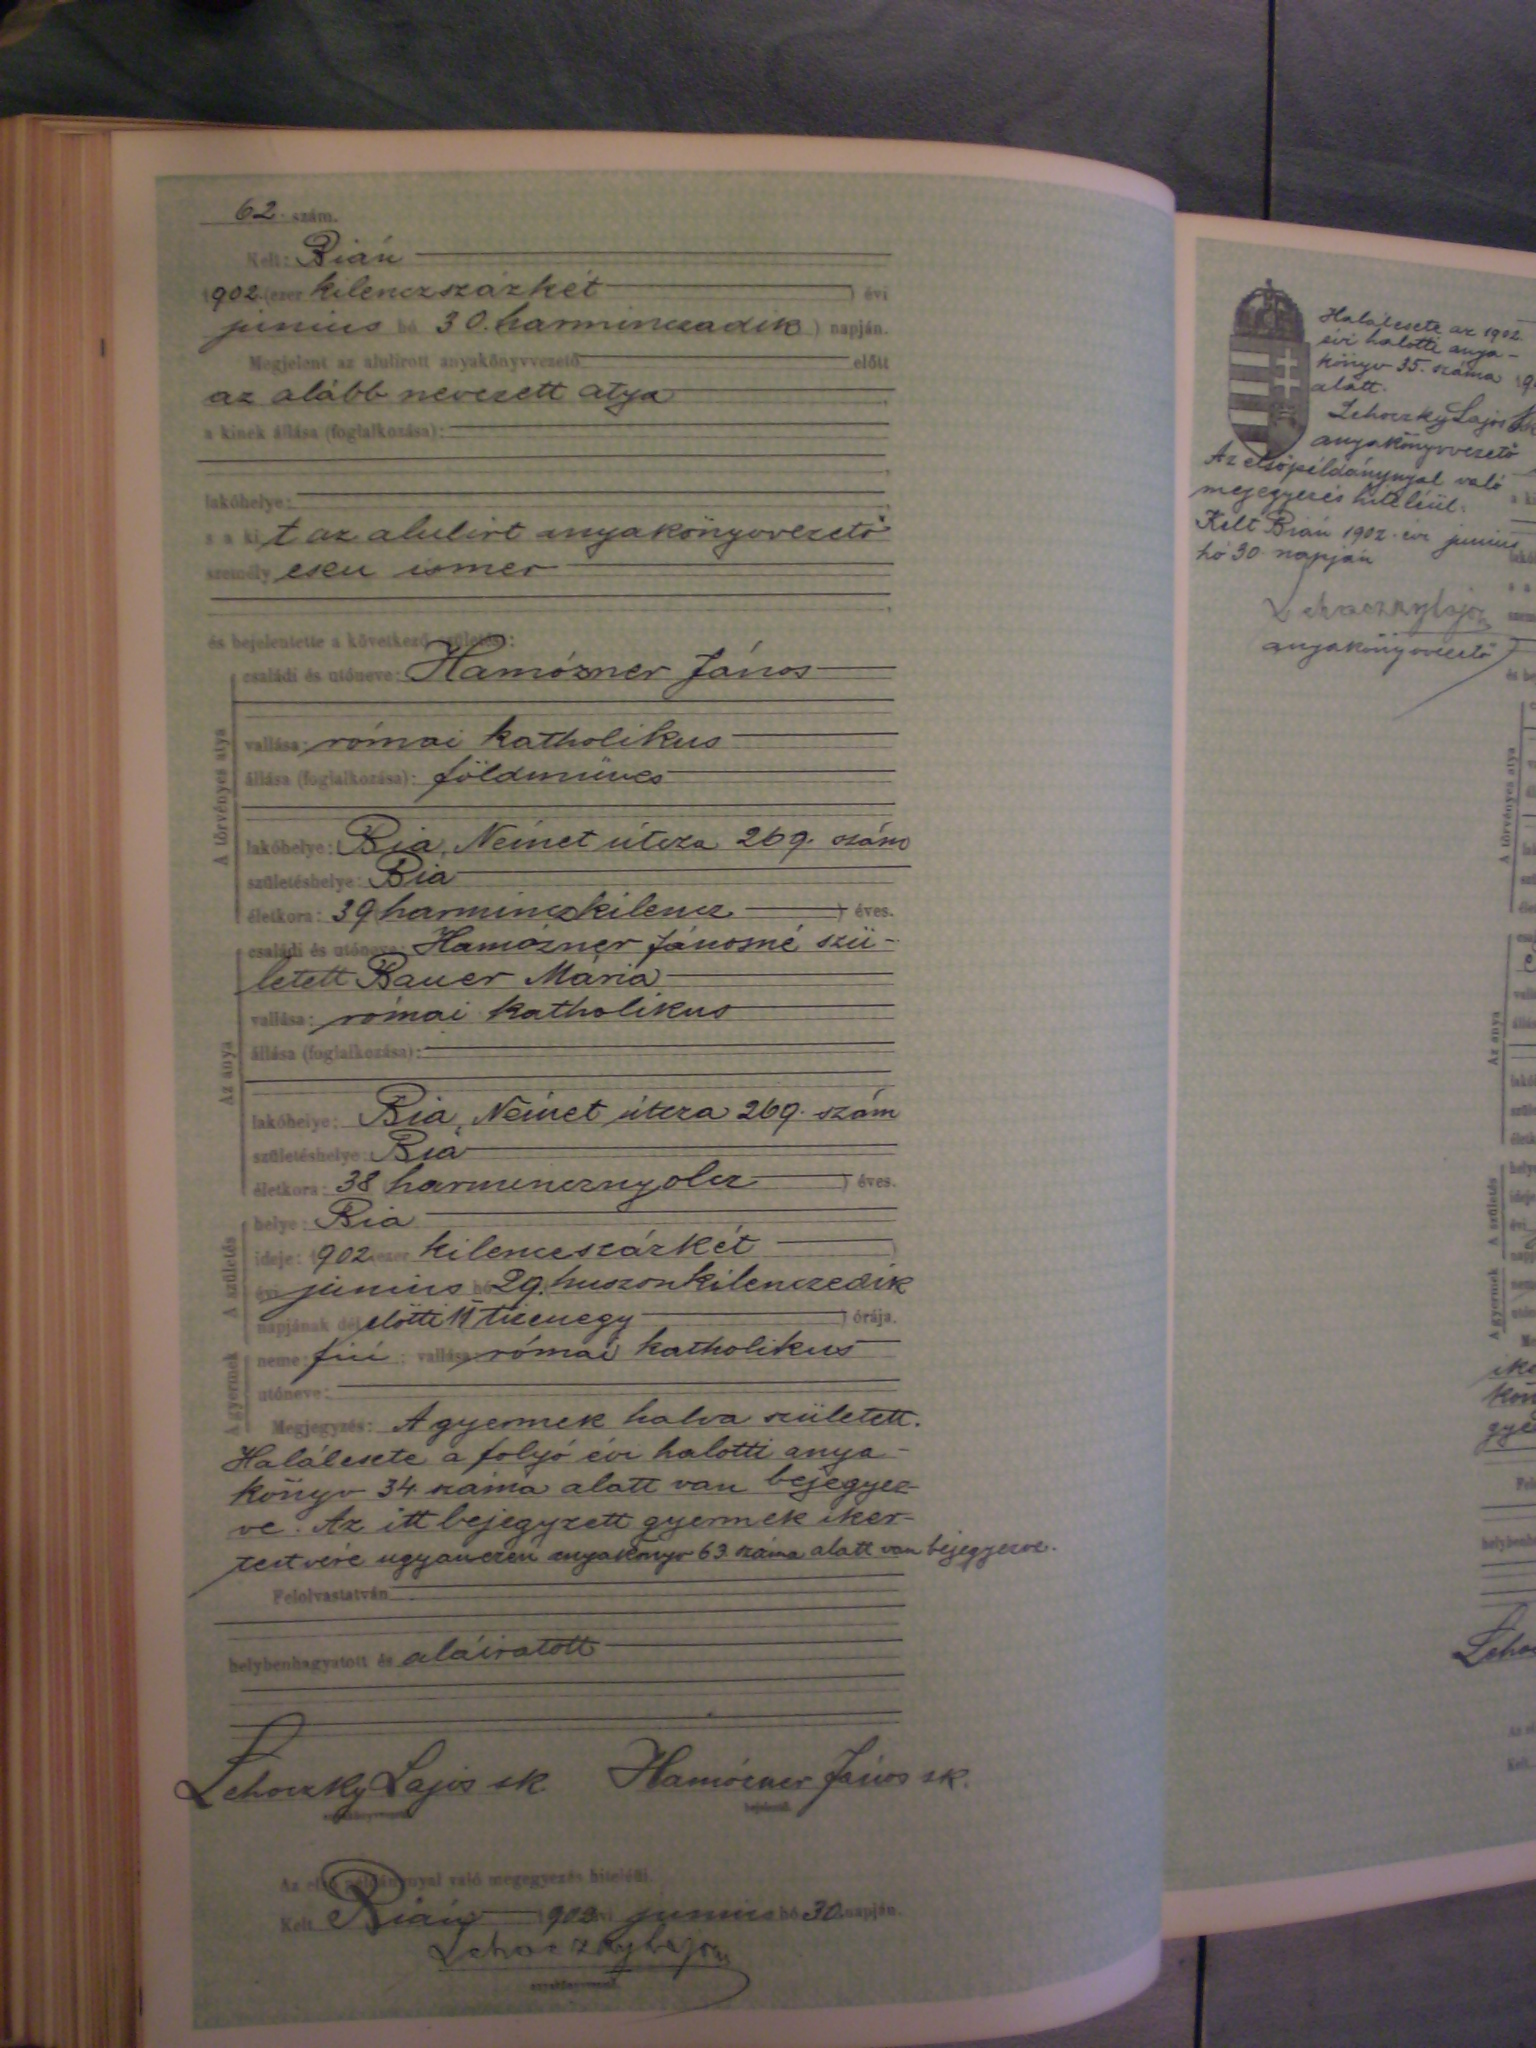 62. szám.
Kelt: Bián
1902. (ezer kilenczszázkét) évi
junius hó 30. (harminczadik) napján.
Megjelent az alulírott anyakönyvvezető előtt
az alább nevezett atya,
a kinek állása (foglalkozása):
lakóhelye:
s a kit az alulirt anyakönyvvezető
személyesen ismer
és bejelentette a következő születést:
A törvényes atya
családi és utóneve: Hamózner János
vallása: római katholikus
állása (foglalkozása): földmüves
lakóhelye: Bia, Német útcza 269. szám
születéshelye: Bia
életkora: 39 (harminczkilencz) éves.
Az anya
családi és utóneve: Hamózner Jánosné szü-
letett Bauer Mária
vallása: római katholikus
állása (foglalkozása):
lakóhelye: Bia, Német útcza 269. szám
születéshelye: Bia
életkora: 38 (harmincznyolcz) éves.
A születés
helye: Bia
ideje: 1902 (ezer kilenczszázkét)
évi junius hó 29. (huszonkilenczedik
napjának délelőtti 11 tizenegy) órája.
A gyermek
neme: fiú; vallása: római katholikus
utóneve:
Megjegyzés: A gyermek halva született.
Halálesete a folyó évi halotti anya-
könyv 34 száma alatt van bejegyez-
ve. Az itt bejegyzett gyermek iker-
testvére ugyanezen anyakönyv 63 száma alatt van bejegyezve.
Felolvastatván
helybenhagyatott és aláiratott
Lehoczky Lajos sk. Hamózner János sk.
anyakönyvvezető. bejelentő.
Az első példánnyal való megegyezés hiteléül.
Kelt Bián 1902 évi junius hó 30 napján.
Lehoczky Lajos
anyakönyvvezető.
Halálesete az 1902
évi halotti anya-
könyv 35. száma
alatt.
Lehoczky Lajos sk
anyakönyvvezető
Az elsőpéldánynyal való
megegyezés hiteléül:
Kelt Bián 1902. évi junius
hó 30 napján
Lehoczky Lajos
anyakönyvvezető